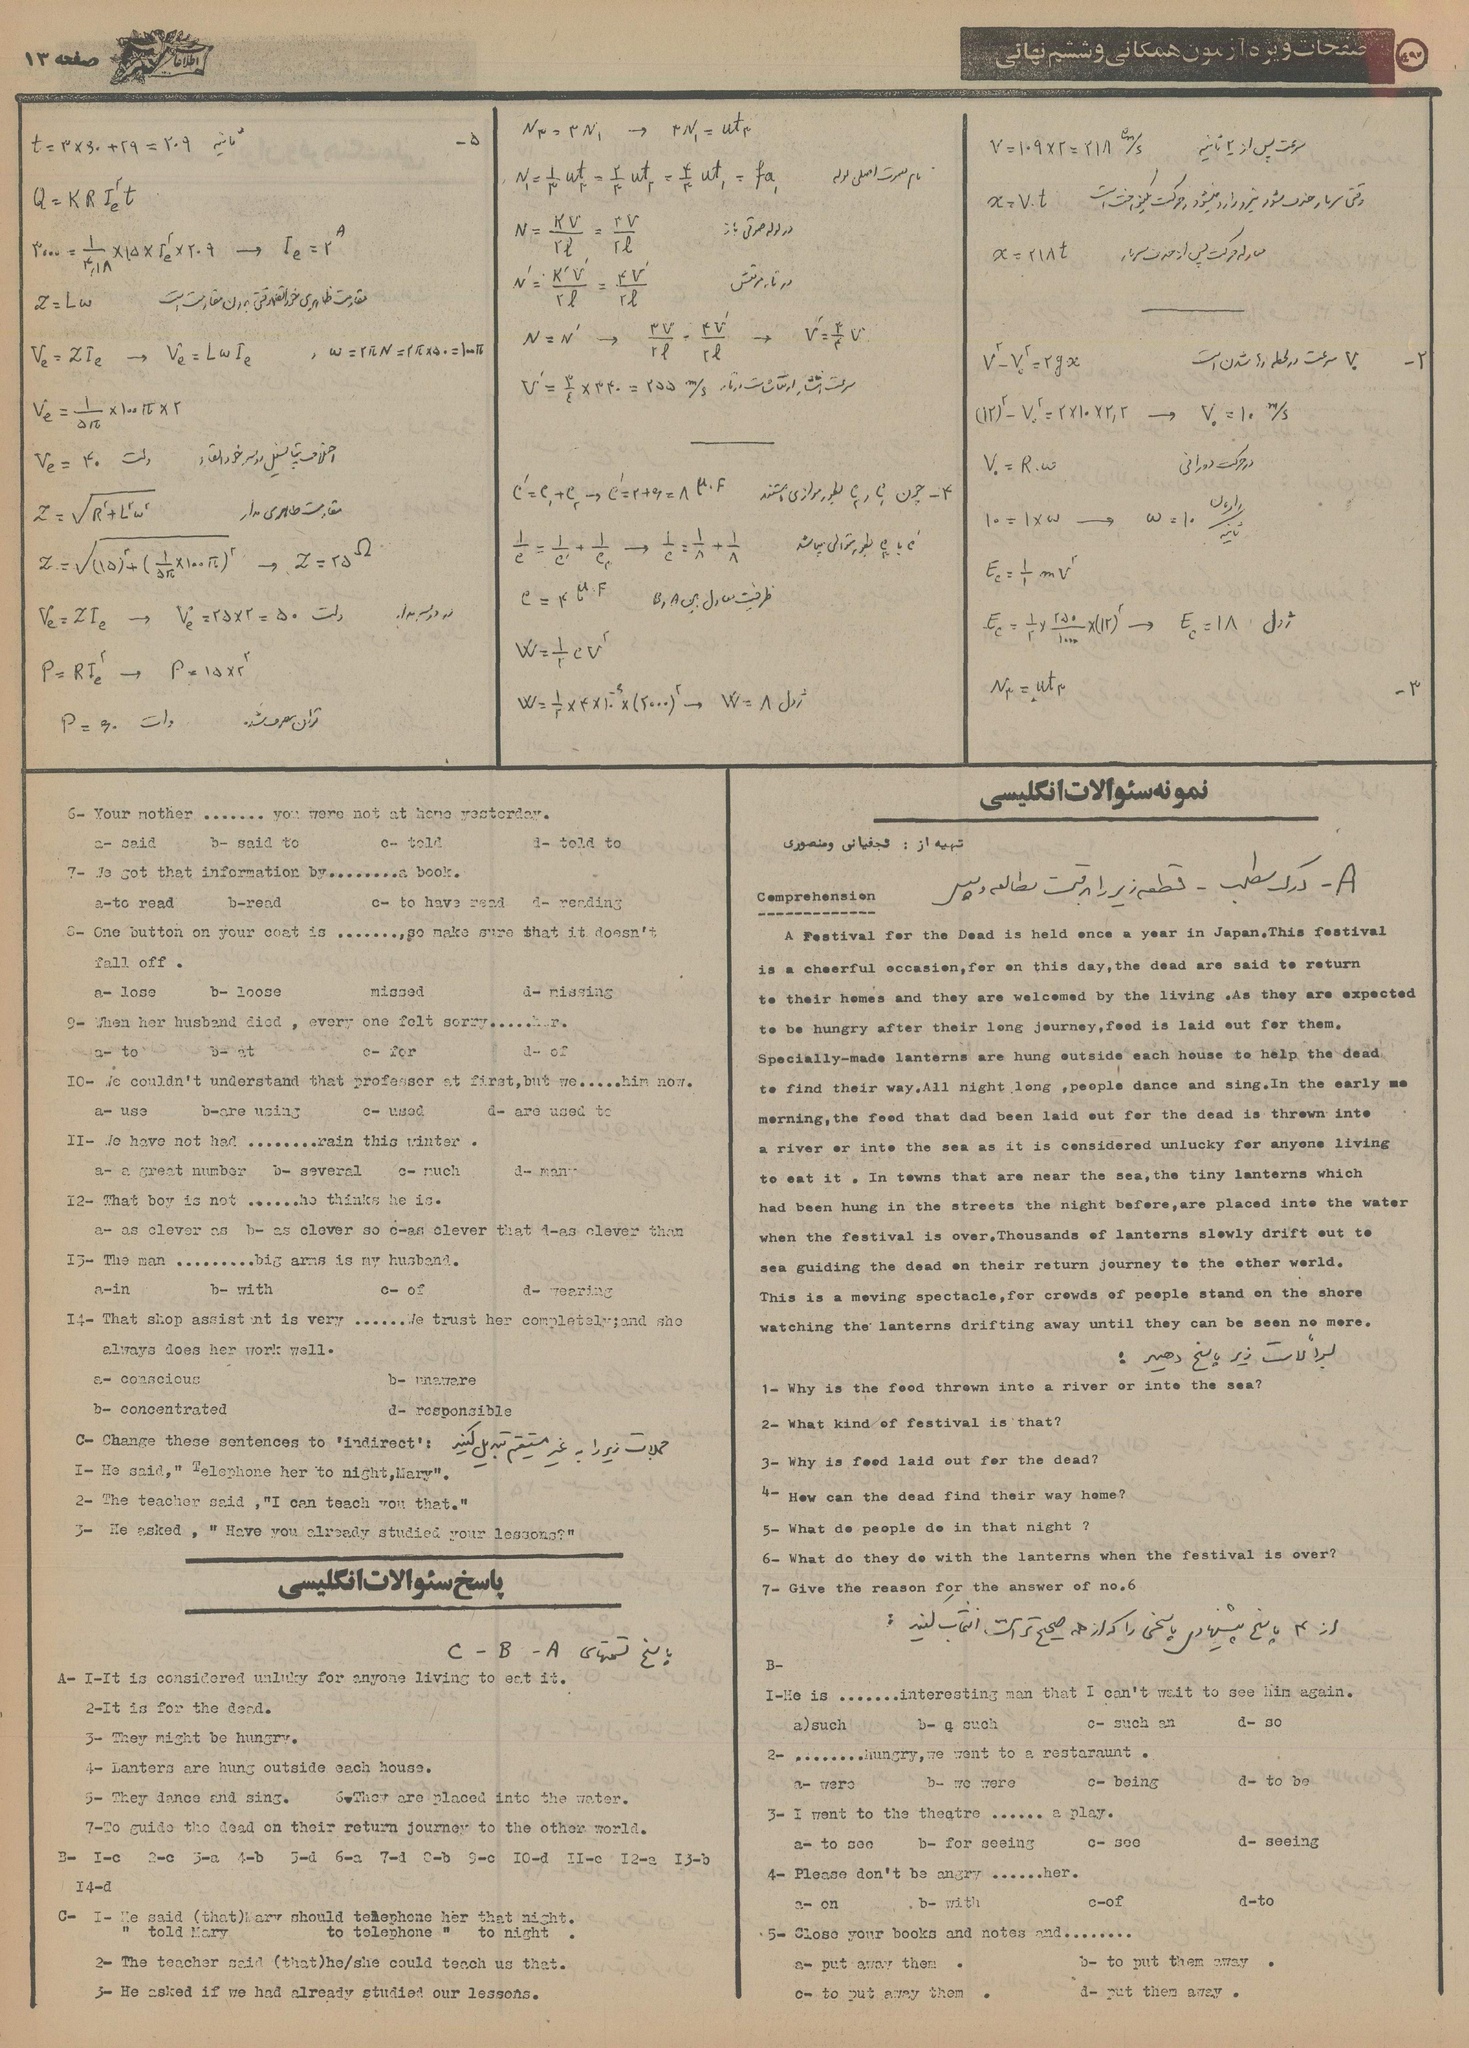 صفحات ویژه آزمون همگانی و ششم نهائی
صفحه ۱۳
V = ۱۰۹ × ۲ = ۲۱۸ cm/s سرعت پس از ۲ ثانیه
x = V. t
x = ۲۱۸ t
۲-
V² - V.² = ۲gx V. سرعت در لحظه رها شدن است
(۱۲)² - V.² = ۲×۱۰×۲٫۲ → V. = ۱۰ m/s
V. = R.ω در حرکت دورانی
۱۰ = ۱×ω → ω = ۱۰ رادیان / ثانیه
E_c = ۱/۲ mV²
E_c = ۱/۲ × ۲۵۰/۱۰۰۰ × (۱۲)² → E_c = ۱۸ ژول
۳- N₃ = ut₃
N₃ = ۳N₁ → ۳N₁ = ut₃
N = KV/۲l = ۲V/۲l در لوله صوتی باز
N' = K'V'/۲l = ۴V'/۲l در تار مرتعش
N = N' → ۳V/۲l = ۴V'/۲l → V' = ۳/۴ V
V' = ۳/۴ × ۳۴۰ = ۲۵۵ m/s سرعت انتشار ارتعاشات در تار
۴- چون
C' = C₁ + C₂ → C' = ۲+۶ = ۸ μ.F
1/C = 1/C' + 1/C₃ → 1/C = ۱/۸ + ۱/۸
C = ۴ μ.F ظرفیت معادل بین A و B
W = ۱/۲ CV²
W = ۱/۲ × ۴ × ۱۰⁻⁶ × (۲۰۰۰)² → W = ۸ ژول
۵-
t = ۳×۶۰ + ۲۹ = ۲۰۹ ثانیه
Q = K R I_e² t
۳۰۰۰ = ۱/۴٫۱۸ × ۱۵ × I_e² × ۲۰۹ → I_e = ۲ A
Z = Lω
V_e = Z I_e → V_e = Lω I_e , ω = ۲πN = ۲π×۵۰ = ۱۰۰π
V_e = ۱/۵π × ۱۰۰π × ۲
V_e = ۴۰ ولت اختلاف پتانسیل دو سر خود القاء
Z = √R² + L²ω² مقاومت ظاهری مدار
Z = √(۱۵)² + (۱/۵π × ۱۰۰π)² → Z = ۲۵ Ω
V_e = Z I_e → V_e = ۲۵×۲ = ۵۰ ولت در دو سر مدار
P = R I_e² → P = ۱۵×۲²
P = ۶۰ وات توان مصرف شده
نمونه سئوالات انگلیسی
تهیه از : نجفیانی ومنصوری
A- درک مطلب - قطعه زیر را بدقت مطالعه و سپس
Comprehension
A Festival for the Dead is held once a year in Japan.This festival
is a cheerful occasion,for on this day,the dead are said to return
to their homes and they are welcomed by the living .As they are expected
to be hungry after their long journey,food is laid out for them.
Specially-made lanterns are hung outside each house to help the dead
to find their way.All night long ,people dance and sing.In the early mo
morning,the food that dad been laid out for the dead is thrown into
a river or into the sea as it is considered unlucky for anyone living
to eat it . In towns that are near the sea,the tiny lanterns which
had been hung in the streets the night before,are placed into the water
when the festival is over.Thousands of lanterns slowly drift out to
sea guiding the dead on their return journey to the other world.
This is a moving spectacle,for crowds of people stand on the shore
watching the lanterns drifting away until they can be seen no more.
بسؤالات زیر پاسخ دهید :
1- Why is the food thrown into a river or into the sea?
2- What kind of festival is that?
3- Why is food laid out for the dead?
4- How can the dead find their way home?
5- What do people do in that night ?
6- What do they do with the lanterns when the festival is over?
7- Give the reason for the answer of no.6
از ۴ پاسخ پیشنهادی پاسخی را که از همه صحیح تر است انتخاب کنید :
B-
I-He is .......interesting man that I can't wait to see him again.
a)such b- q such c- such an d- so
2- ........hungry,we went to a restaraunt .
a- were b- we were c- being d- to be
3- I went to the theatre ...... a play.
a- to see b- for seeing c- see d- seeing
4- Please don't be angry ......her.
a- on b- with c-of d-to
5- Close your books and notes and........
a- put away them . b- to put them away .
c- to put away them . d- put them away .
6- Your mother ....... you were not at home yesterday.
a- said b- said to c- told d- told to
7- We got that information by........a book.
a-to read b-read c- to have read d- reading
8- One button on your coat is .......,so make sure that it doesn't
fall off .
a- lose b- loose missed d- missing
9- When her husband died , every one felt sorry.....her.
a- to b- at c- for d- of
IO- We couldn't understand that professor at first,but we.....him now.
a- use b-are using c- used d- are used to
II- We have not had ........rain this winter .
a- a great number b- several c- much d- many
I2- That boy is not ......he thinks he is.
a- as clever as b- as clever so c-as clever that d-as clever than
I3- The man .........big arms is my husband.
a-in b- with c- of d- wearing
I4- That shop assistant is very ......We trust her completely;and she
always does her work well.
a- conscious b- unaware
b- concentrated d- responsible
C- Change these sentences to 'indirect': جملات زیر را به غیر مستقیم تبدیل کنید
I- He said," Telephone her to night,Mary".
2- The teacher said ,"I can teach you that."
3- He asked , " Have you already studied your lessons?"
پاسخ سئوالات انگلیسی
پاسخ قسمتهای C - B - A
A- I-It is considered unluky for anyone living to eat it.
2-It is for the dead.
3- They might be hungry.
4- Lanters are hung outside each house.
5- They dance and sing. 6.They are placed into the water.
7-To guide the dead on their return journey to the other world.
B- I-c 2-c 3-a 4-b 5-d 6-a 7-d 8-b 9-c IO-d II-c I2-a I3-b
I4-d
C- I- He said (that)Mary should telephone her that night.
" told Mary to telephone " to night .
2- The teacher said (that)he/she could teach us that.
3- He asked if we had already studied our lessons.